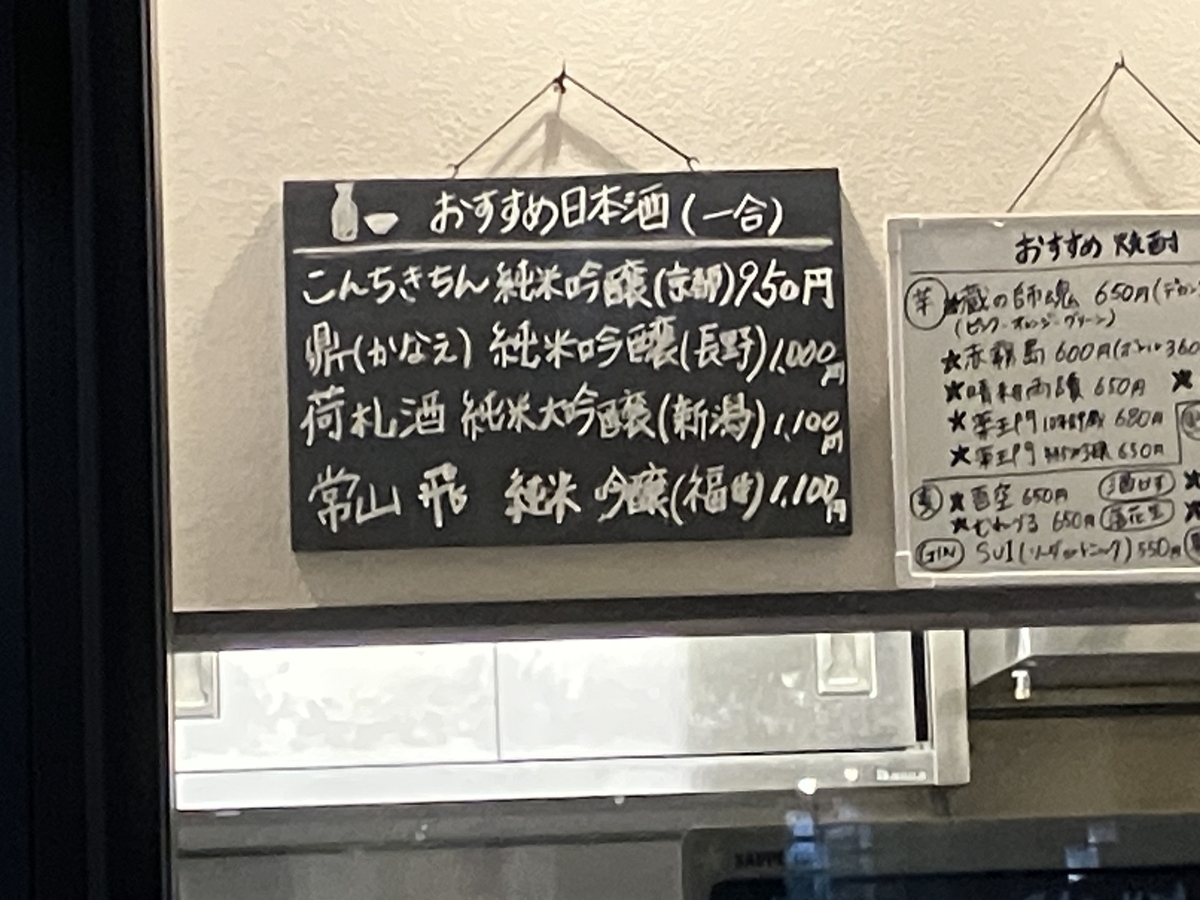 おすすめ日本酒(一合)
こんちきちん 純米吟醸(京都)950円
鼎(かなえ) 純米吟醸(長野)1,000円
荷札酒 純米大吟醸(新潟)1,100円
常山 飛 純米 吟醸(福井)1,100円
おすすめ 焼酎
芋 蔵の師魂 650円
(ピンク・オレンジ・グリーン)
★赤霧島 600円
★晴耕雨読 650円
★薬王門 680円
★薬王門 650円
麦 ★百空 650円
★むれづる 650円
GIN SUI(ソーダorトニック)550円